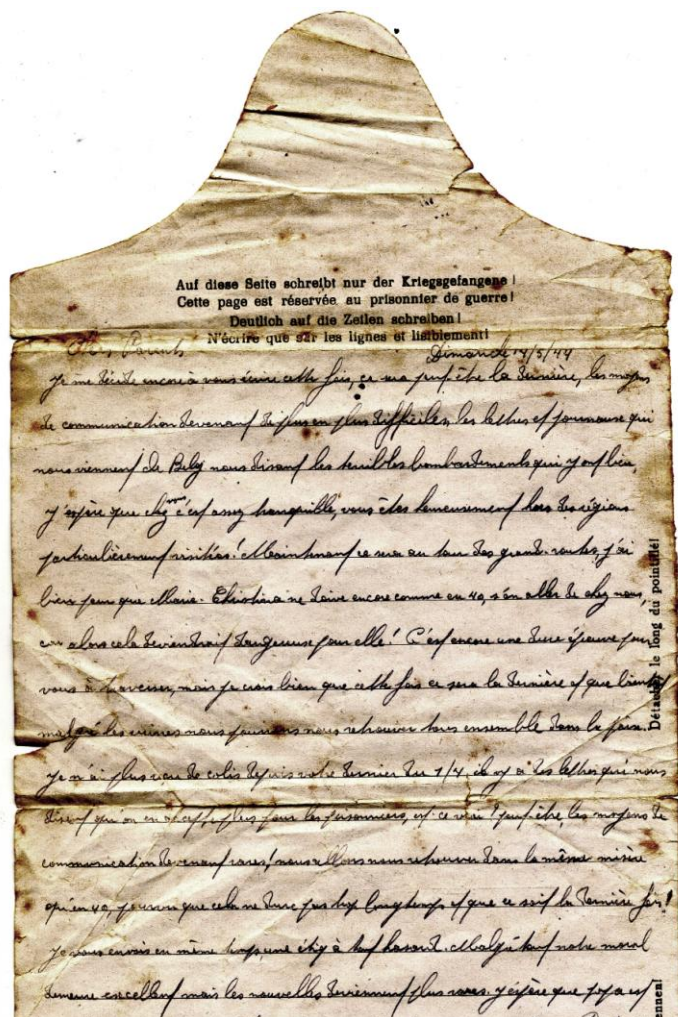 Auf diese Seite schreibt nur der Kriegsgefangene!
Cette page est réservée au prisonnier de guerre!
Deutlich auf die Zeilen schreiben!
N'écrire que sur les lignes et lisiblement!
Chers Parents Dimanche 14/5/44
Je me décide encore à vous écrire cette fois, ce sera peut être la dernière, les moyens
de communication devenant de plus en plus difficiles, les lettres et journaux qui
nous viennent de Belg nous disant les terribles bombardements qui y ont lieu,
J'espère que chez vous c'est assez tranquille, vous êtes heureusement hors des régions
particulièrement visitées! Maintenant ce sera au tour des grand-routes, j'ai
bien peur que Marie-Christina ne doive encore comme en 40, s'en aller de chez nous,
car alors cela deviendrait dangereuse pour elle! C'est encore une dure épreuve pour
vous à traverser, mais je crois bien que cette fois ce sera la dernière et que bientôt
malgré les ruines nous pourrons nous retrouver tous ensemble dans la paix.
Je n'ai plus reçu de colis depuis votre dernier du 7/4, il y a des lettres qui nous
disent qu'on en accepte plus pour les prisonniers, est ce vrai? peut-être, les moyens de
communication devenant rares! nous allons nous retrouver dans la même misère
qu'en 40, pourvu que cela ne dure pas trop longtemps et que ce soit la dernière fois!
Je vous envois en même temps une étiq à tout hasard. Malgré tout notre moral
demeure excellent mais les nouvelles deviennent plus rares. J'espère que papa est
Détacher le long du pointillé!